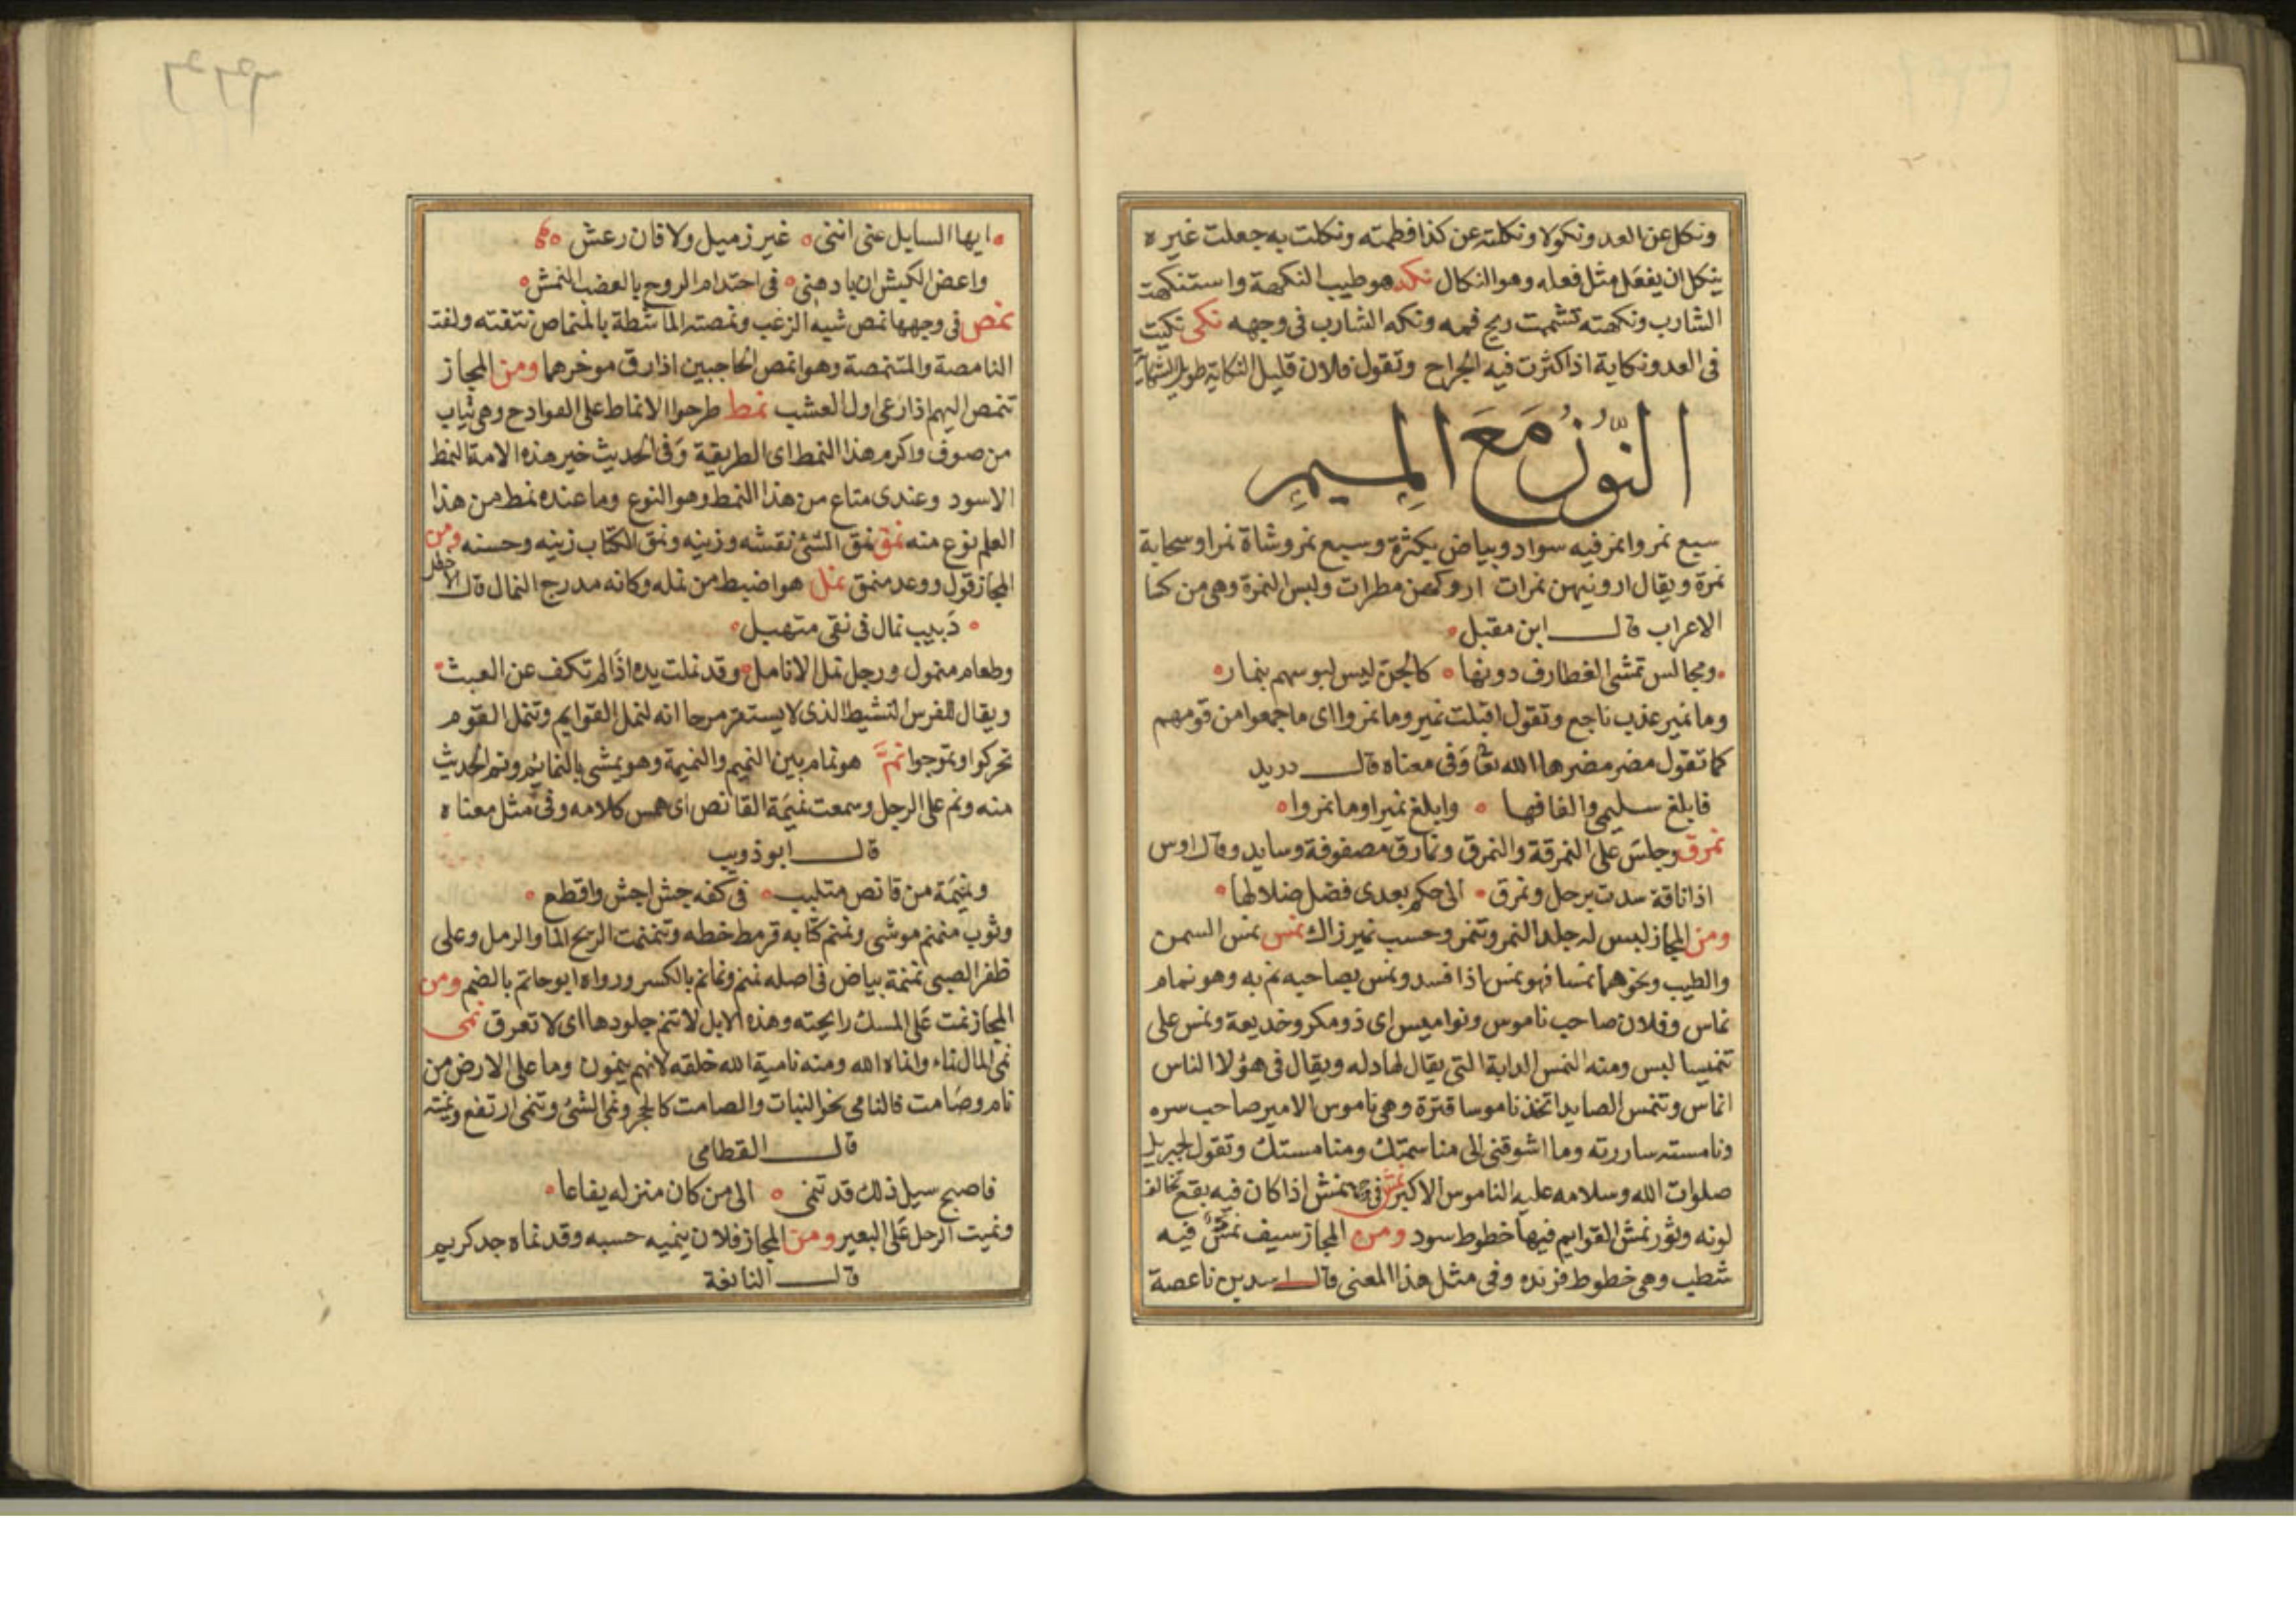 ونكل عن العدو نكولا ونكلته عن كذا فطمته ونكلت به جعلت غيره
ينكل ان يفعل مثل فعله وهو النكال نكه هو طيب النكهة واستنكهت
الشارب ونكهته تشممت ريح فمه ونكه الشارب في وجهه نكى نكيت
في العدو نكاية اذا اكثرت فيه الجراح وتقول فلان قليل النكاية طويل الشكاية
النون مع الميم
سبع نمر وانمر فيه سواد وبياض بكثرة وسبع نمر وشاة نمرا وسحابة
نمرة ويقال ارونيهن نمرات اروكهن مطرات ولبس النمرة وهي من كسا
الاعراب قال ابن مقبل
ومجالس تمشي الغطارف دونها كالجن ليس لبوسهم بنمار
وما نمير عذب ناجع وتقول اقبلت نمير وما نمروا اى ما جمعوا من قومهم
كما تقول مضر مضرها الله تعا وفى معناه قال دريد
فابلغ سليمى والفافها وابلغ نميرا وما نمروا
نمرق وجلس على النمرقة والنمرق ونمارق مصفوفة وسايد وقال اوس
اذا ناقة سدت برحل ونمرق الى حكم بعدى فضل ضلالها
ومن المجاز لبس له جلد النمر وتنمر وحسب نمير زاك نمس نمس السمن
والطيب ونحوهما نمسا فهو نمس اذا فسد ونمس بصاحبه نم به وهو نمام
نماس وفلان صاحب ناموس ونواميس اى ذو مكر وخديعة ونمس على
تنميسا لبس ومنه النمس الدابة التى يقال لها دله ويقال فى هؤلا الناس
انماس وتنمس الصايد اتخذ ناموسا قترة وهى ناموس الامير صاحب سره
ونامسته ساررته وما اشوقنى الى مناسمتك ومنامستك وتقول لجبريل
صلوات الله وسلامه عليه الناموس الاكبر نمش فى نمش اذا كان فيه بقع تخالف
لونه وثور نمش القوايم فيها خطوط سود ومن المجاز سيف نمش فيه
شطب وهى خطوط فرنده وفى مثل هذا المعنى قال اسد بن ناعصة
ايها السايل عنى اننى غير زميل ولا فان رعش
واعض الكبش ان يا دهنى فى احتدام الروح بالعضب النمش
نمص فى وجهها نمص شبه الزغب ونمصته الماشطة بالمنماص نتفته ولعنت
النامصة والمتنمصة وهو انمص الحاجبين اذا رق موخرهما ومن المجاز
تنمص البهم اذا رعى اول العشب نمط طرحوا الانماط على الهوادج وهى ثياب
من صوف واكرم هذا النمط اى الطريقة وفى الحديث خير هذه الامة النمط
الاسود وعندى متاع من هذا النمط وهو النوع وما عنده نمط من هذا
العلم نوع منه نمق نمق الشئ نقشه وزينه ونمق الكتاب زينه وحسنه ومن
المجاز قول ووعد منمق نمل هو اضبط من نمله وكانه مدرج النمال قال الاخطل
دبيب نمال فى نقى متهيل
وطعام منمول ورجل نمل الانامل وقد نملت يده اذا لم تكف عن العبث
ويقال للفرس النشيط الذى لا يستقر مرحا انه لنمل القوايم وتنمل القوم
تحركوا وتموجوا نم هو نمام بين النميم والنميمة وهو يمشى بالنمائم ونم الحديث
منه ونم على الرجل وسمعت نميمة القانص اى همس كلامه وفى مثل معناه
قال ابو ذويب
ونميمة من قانص متلبب فى كفه جشئ اجش واقطع
وثوب منمنم موشى ونمنم كتابه قرمط خطه وتنمنمت الريح الما والرمل وعلى
ظفر الصبى نمنمة بياض فى اصله نمنم ونمانم بالكسر ورواه ابو حاتم بالضم ومن
المجاز نمت على المسك رايحته وهذه الابل لا تنم جلودها اى لا تعرق نمى
نمى المال نماء وانماه الله ومنه نامية الله خلقه لانهم ينمون وما على الارض من
نام وصامت فالنامى نحو النبات والصامت كالحجر ونمى الشئ وتنمى ارتفع ونميته
قال القطامى
فاصبح سيل ذلك قد تنمى الى من كان منزله يفاعا
ونميت الرحل على البعير ومن المجاز فلان ينميه حسبه وقد نماه جد كريم
قال النابغة